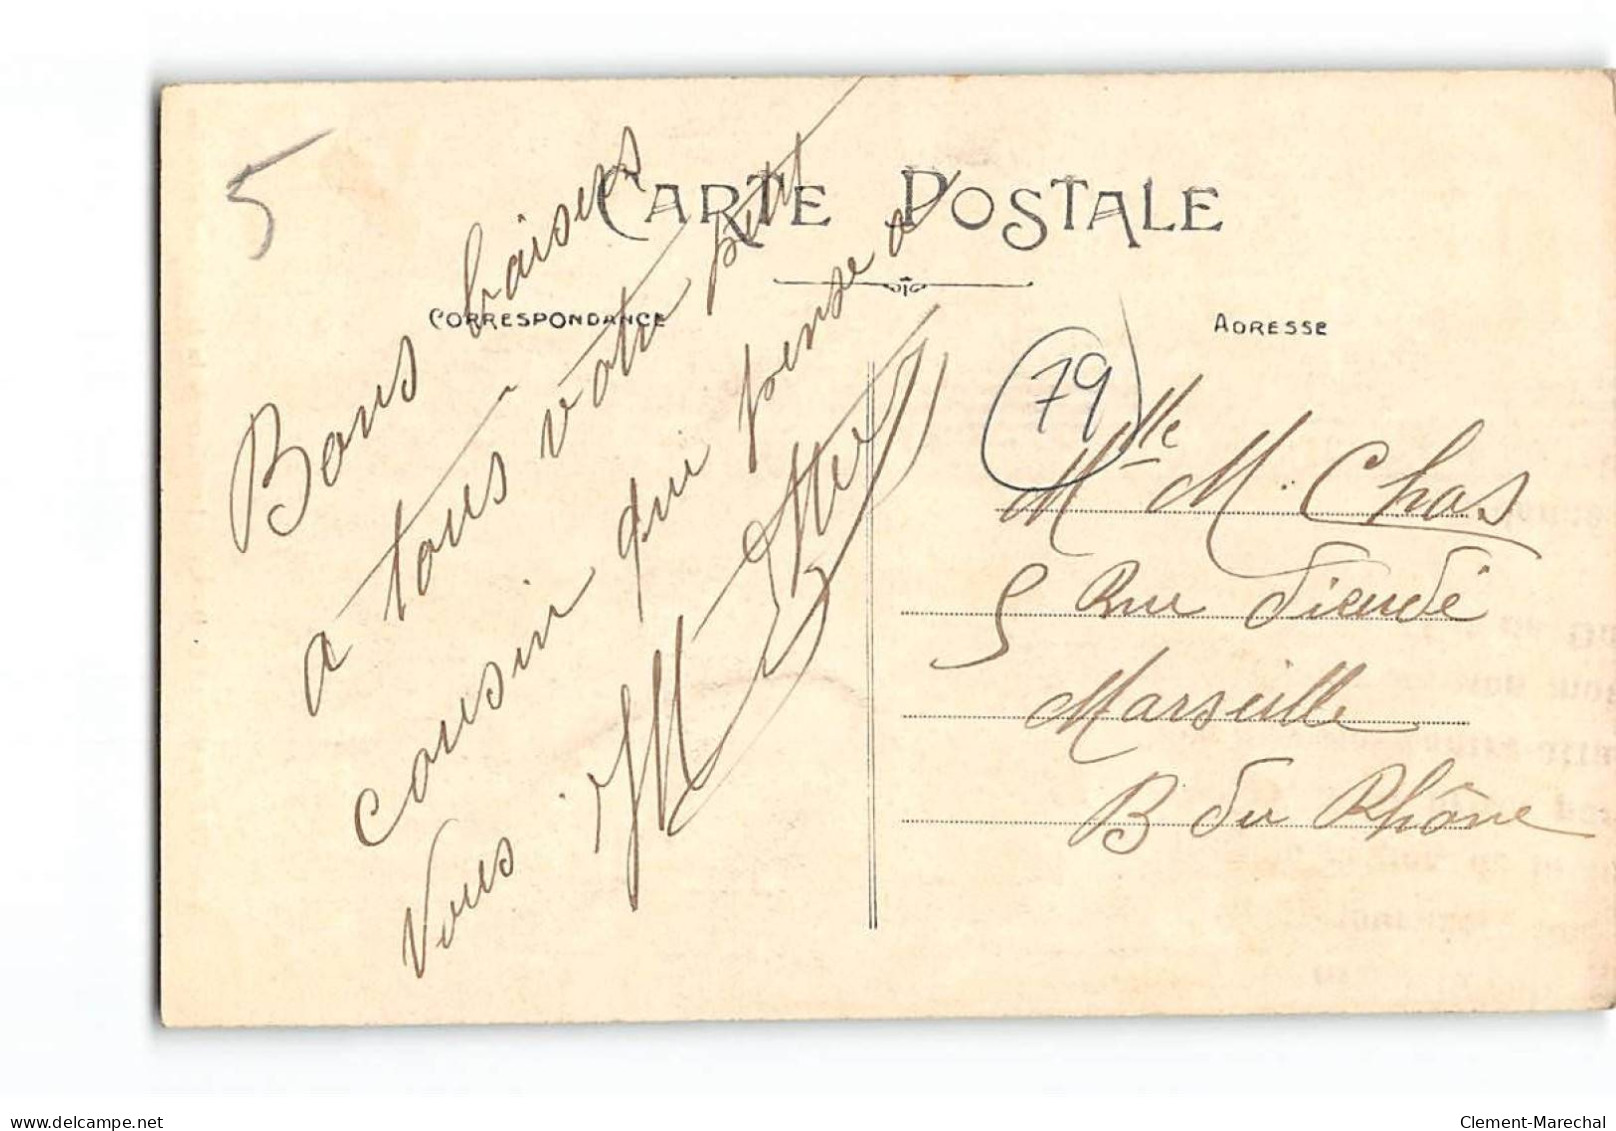 5
CARTE POSTALE
CORRESPONDANCE
Bons baisers
a tous votre petit
cousin qui pense a
vous
ADRESSE
79
Mlle M. Chas
5 Rue Dieudé
Marseille
B du Rhône
delcampe.net
Clement-Marechal